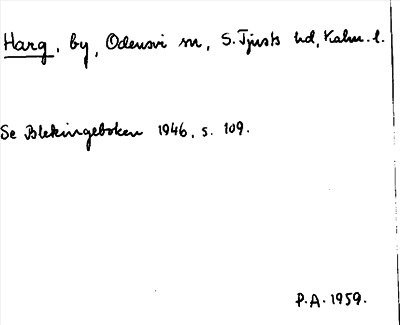 Harg, by, Odensvi sn, S. Tjusts hd, Kalm. l.
Se Blekingeboken 1946, s. 109.
P.A. 1959.